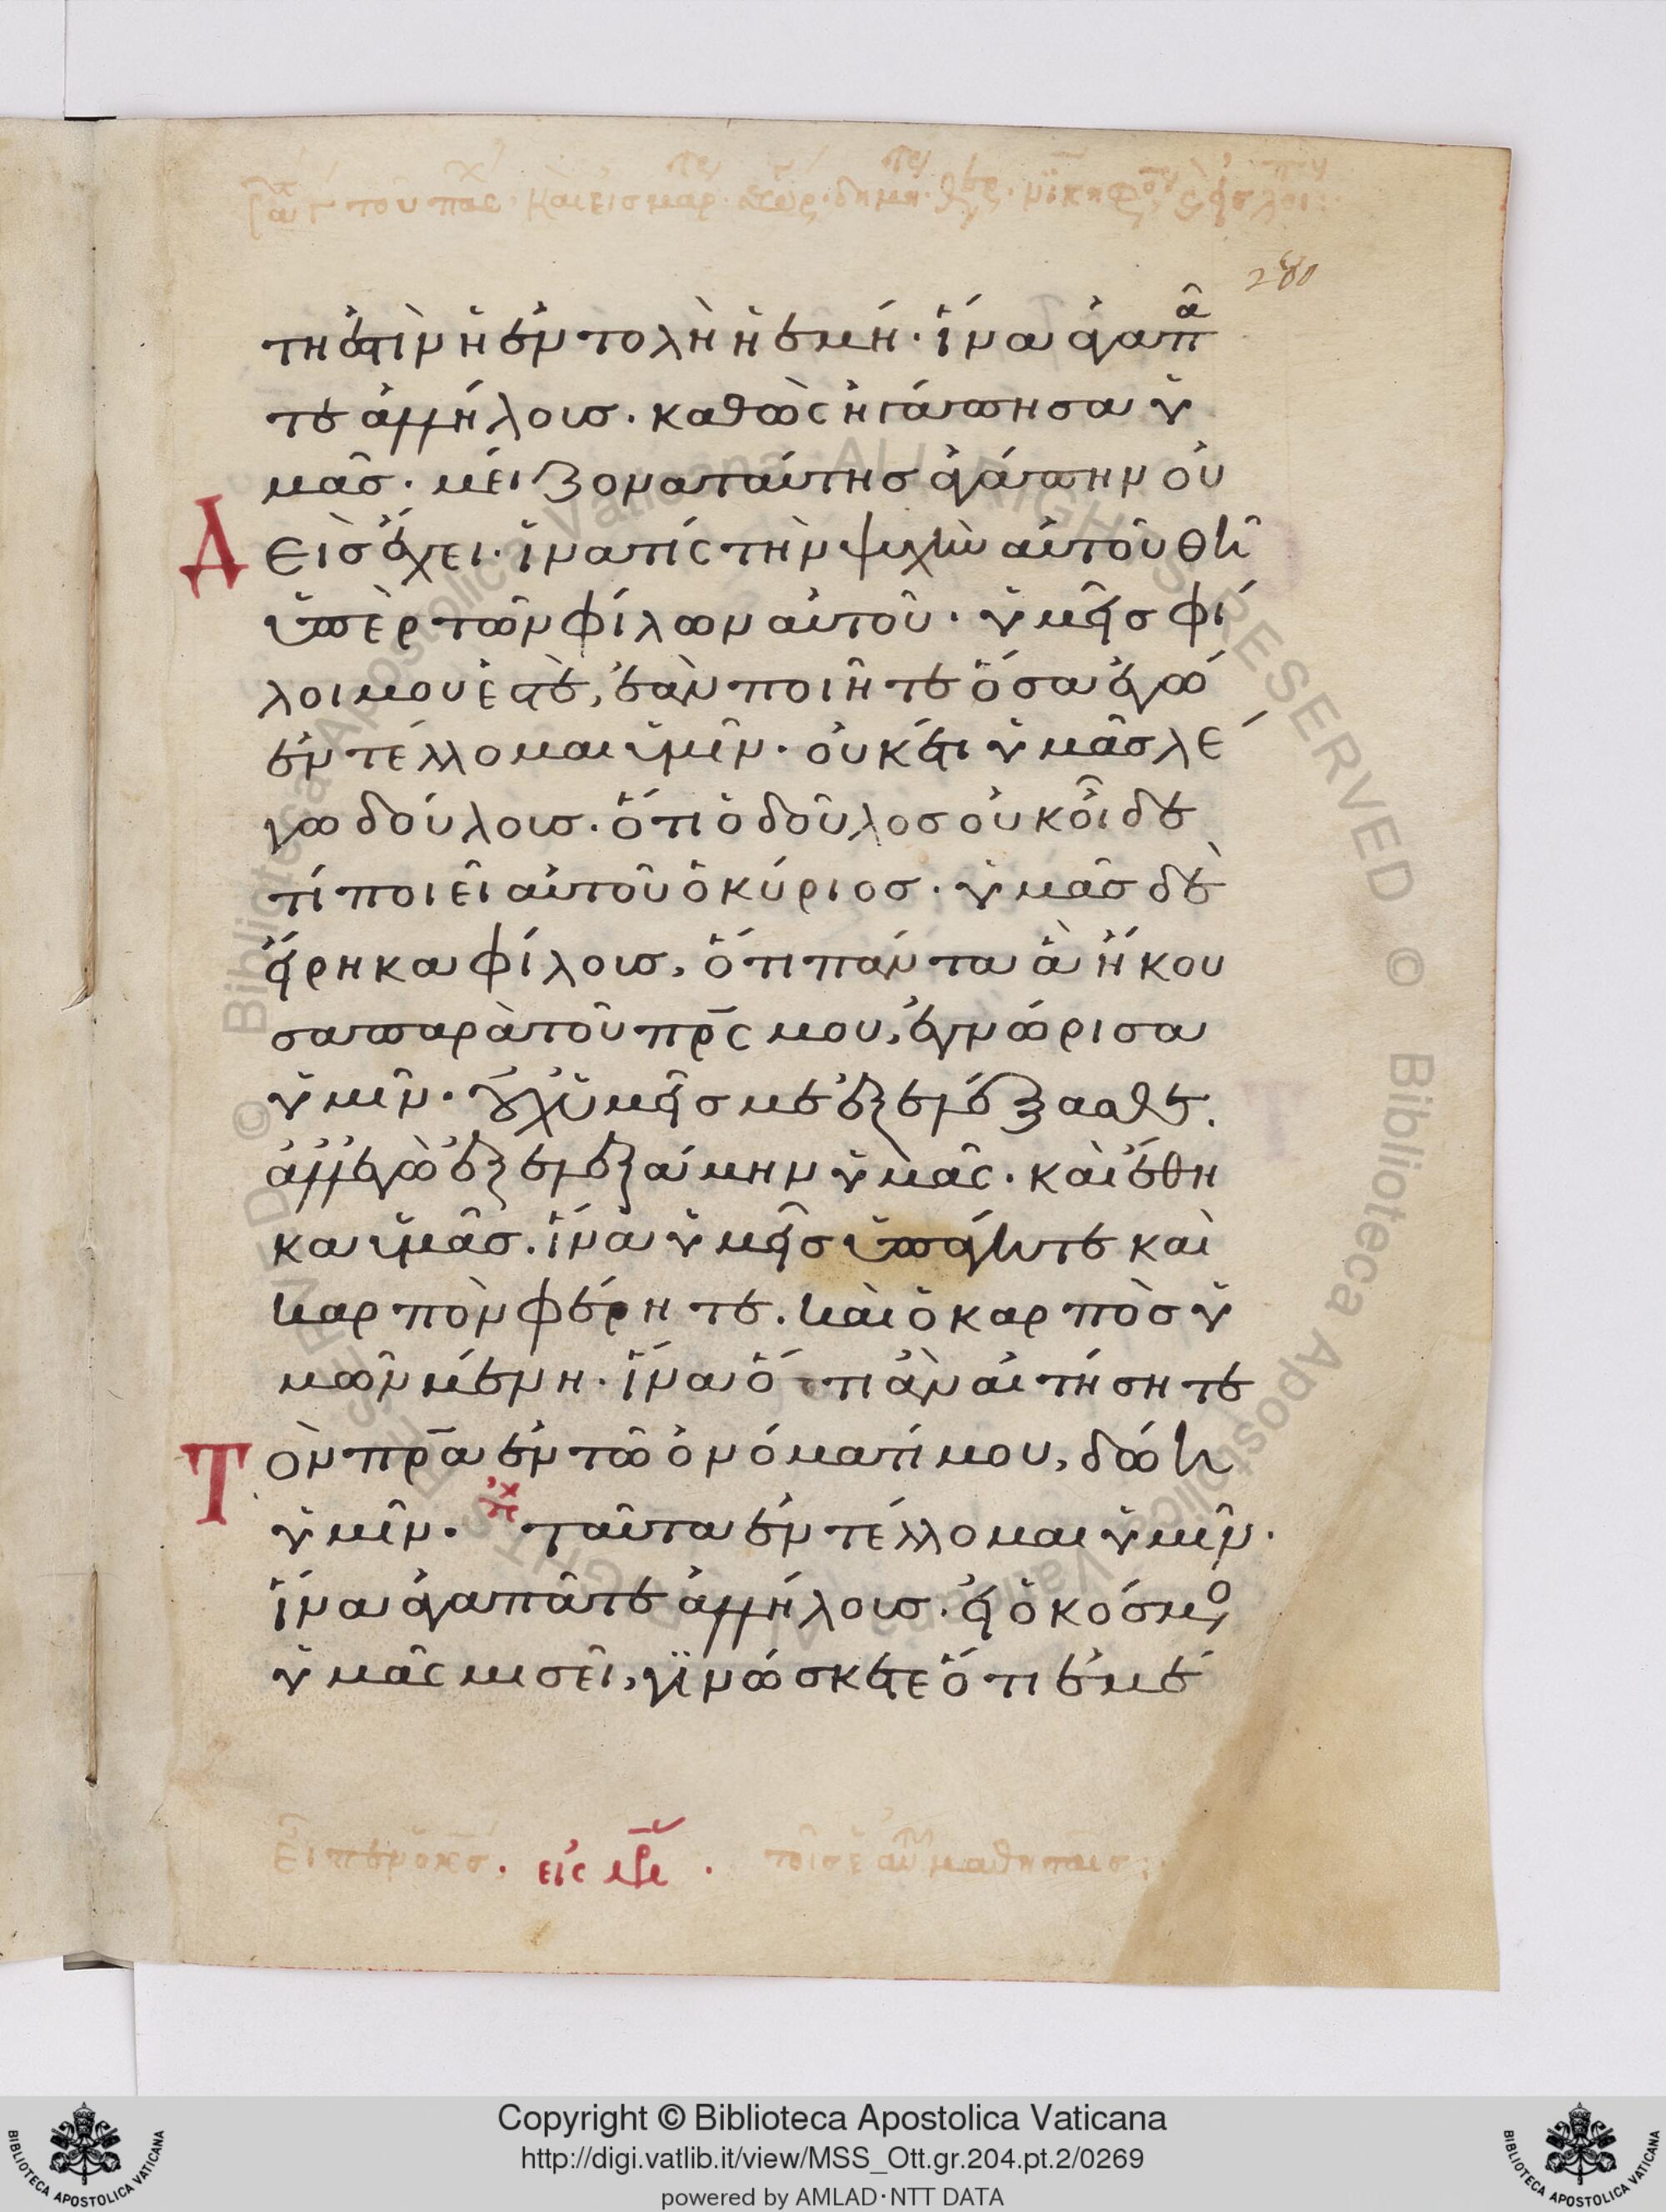 280
τη ἐστὶν ἡ ἐντολὴ ἡ ἐμή· ἵνα ἀγαπᾶ
τε ἀλλήλους· καθὼς ἠγάπησα ὑ
μᾶς· μείζονα ταύτης ἀγάπην οὐ
Δεὶς ἔχει· ἵνα τίς τὴν ψυχὴν αὐτοῦ θῆ
ὑπὲρ τῶν φίλων αὐτοῦ· ὑμεῖς φί
λοι μου ἐστὲ, ἐὰν ποιῆτε ὅσα ἐγώ
ἐντέλλομαι ὑμῖν· οὐκέτι ὑμᾶς λέ
γω δούλους· ὅτι ὁ δοῦλος οὐκ οἶδε
τί ποιεῖ αὐτοῦ ὁ κύριος· ὑμᾶς δὲ
εἴρηκα φίλους, ὅτι πάντα ἃ ἤκου
σα παρὰ τοῦ πρς μου, ἐγνώρισα
ὑμῖν· οὐχ ὑμεῖς με ἐξελέξασθε·
ἀλλ' ἐγὼ ἐξελεξάμην ὑμᾶς· καὶ ἔθη
κα ὑμᾶς· ἵνα ὑμεῖς ὑπάγητε καὶ
καρπὸν φέρητε· καὶ ὁ καρπὸς ὑ
μῶν μένη· ἵνα ὅ τι ἂν αἰτήσητε
Τὸν πρα ἐν τῶ ὀνόματί μου, δώη
ὑμῖν· ταῦτα ἐντέλλομαι ὑμῖν·
ἵνα ἀγαπᾶτε ἀλλήλους· εἰ ὁ κόσμο
ὑμᾶς μισεῖ, γϊνώσκετε ὅτι ἐμέ
© Biblioteca Apostolica Vaticana ALL RIGHTS RESERVED
© Biblioteca Apostolica Vaticana ALL RIGHTS RESERVED
Copyright © Biblioteca Apostolica Vaticana
http://digi.vatlib.it/view/MSS_Ott.gr.204.pt.2/0269
powered by AMLAD·NTT DATA
BIBLIOTECA APOSTOLICA VATICANA
BIBLIOTECA APOSTOLICA VATICANA